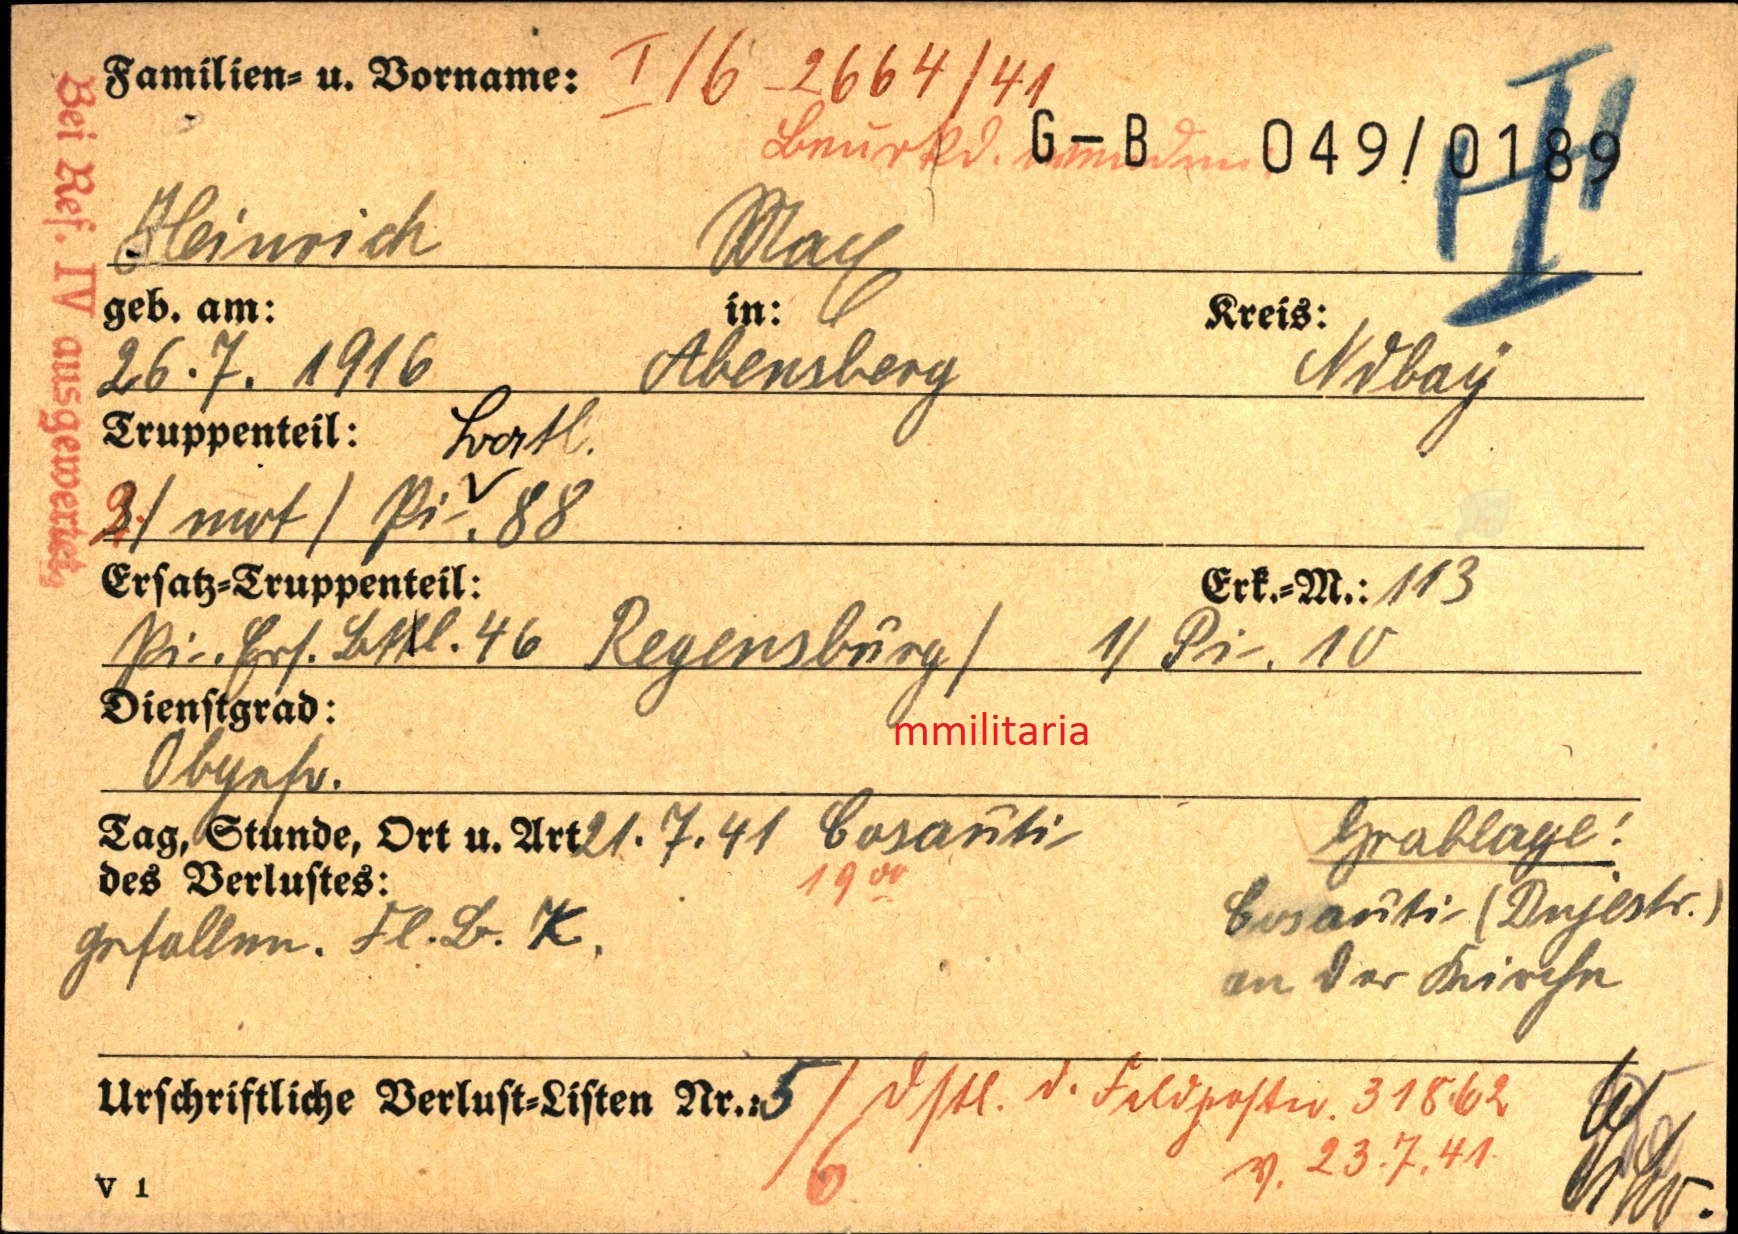 Familien- u. Vorname: I/6 - 2664/41
Beurkd.
G-B 049/0189
Heinrich Max
geb. am: in: Kreis:
26.7. 1916 Abensberg Ndbay
Truppenteil:
/ mot / Pi-. 88
Ersatz-Truppenteil: Erk.-M.: 113
Pi-. Ers. Btl. 46 Regensburg / 1/ Pi-. 10
Dienstgrad:
Obgefr.
mmilitaria
Tag, Stunde, Ort u. Art 21.7.41 Cosauti- Grablage!
des Verlustes: 19 00
gefallen. Fl. B. K. Cosauti- (Dnjestr.)
an der Kirche
Urschriftliche Verlust-Listen Nr.: 5 / 6 Dstl. d. Feldpostn. 31862
v. 23.7.41
V 1
Bei Ref. IV ausgewertet